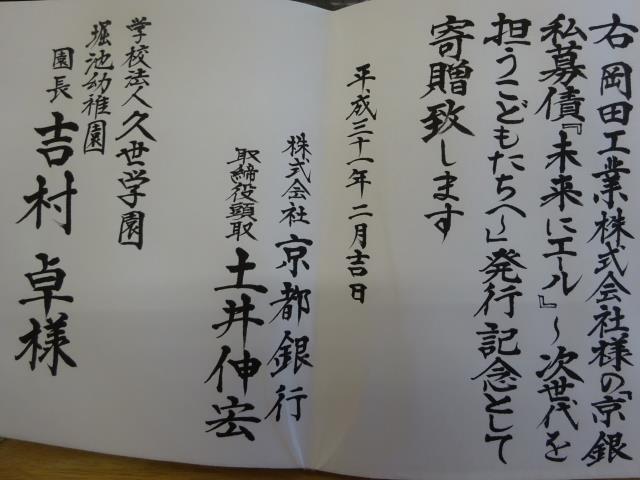 右 岡田工業株式会社様の「京銀
私募債『未来にエール』～次世代を
担うこどもたちへ～」発行記念として
寄贈致します
平成三十一年二月吉日
株式会社 京都銀行
取締役頭取 土井伸宏
学校法人 久世学園
堀池幼稚園
園長 吉村 卓様